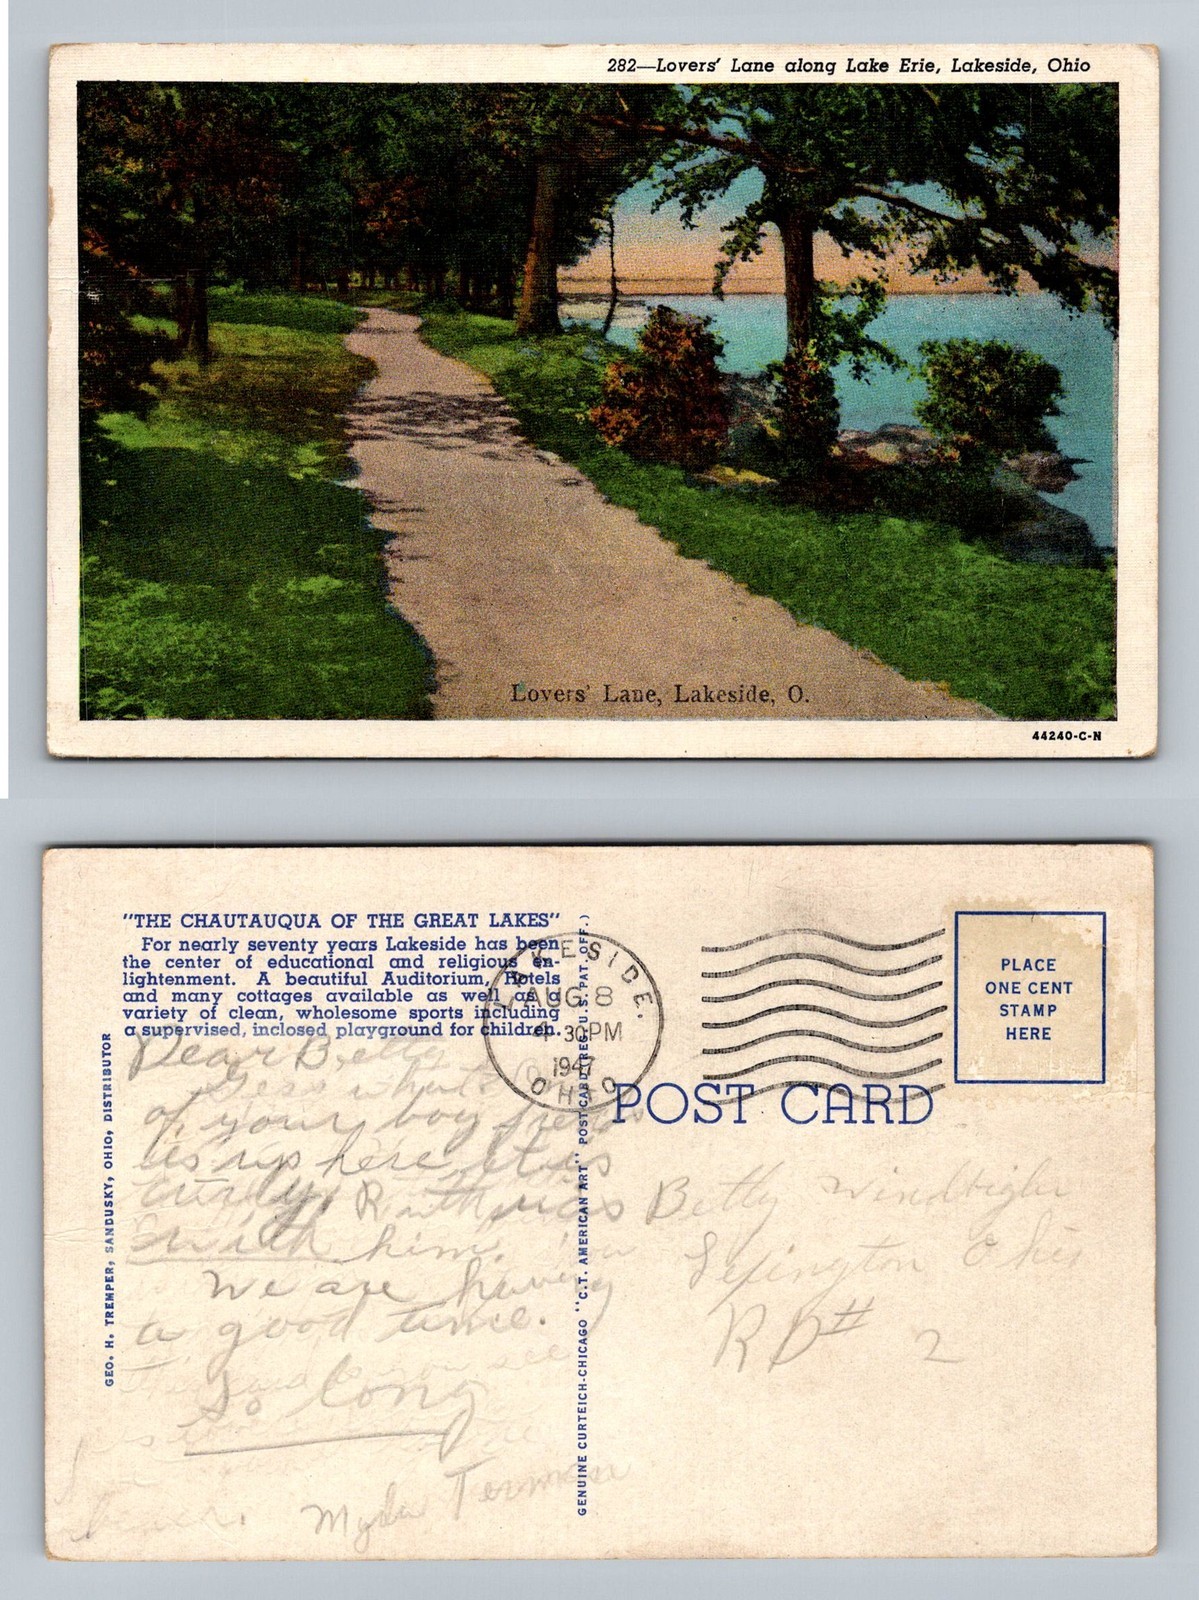 282—Lovers' Lane along Lake Erie, Lakeside, Ohio
Lovers' Lane, Lakeside, O.
44240-C-N
"THE CHAUTAUQUA OF THE GREAT LAKES"
For nearly seventy years Lakeside has been
the center of educational and religious en-
lightenment. A beautiful Auditorium, Hotels
and many cottages available as well as a
variety of clean, wholesome sports including
a supervised, inclosed playground for children.
GEO. H. TREMPER, SANDUSKY, OHIO, DISTRIBUTOR
Dear Betty
Gess what? One
of your boy
is up here. It is
Ruth was
with him.
We are having
a good time.
So long
Myda
GENUINE CURTEICH-CHICAGO "C.T. AMERICAN ART" POST CARD (REG. U.S. PAT. OFF.)
LAKESIDE.
AUG 8
4 30PM
1947
OHIO
PLACE
ONE CENT
STAMP
HERE
POST CARD
Betty
Lexington Ohio
RD# 2